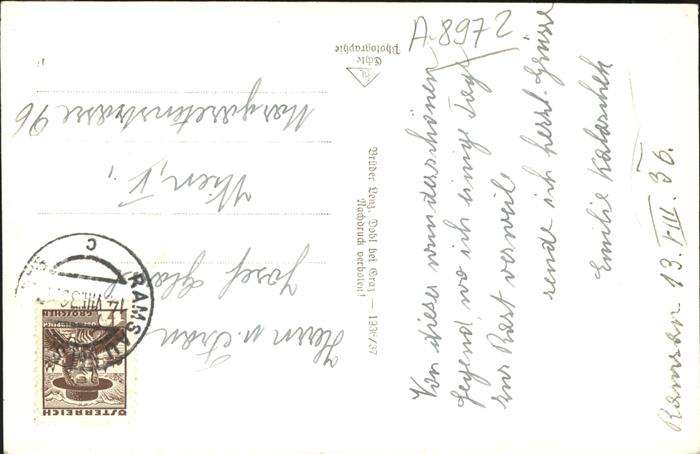 A-8972
Ramsau 13. VIII. 36.
Von dieser wunderschönen
Gegend, wo ich einige Tage
zur Rast verweile
sende ich herzl. Grüsse
Emilie Kataschek
Echte
Photographie
Brüder Lenz, Dobl bei Graz — 1936/37
Nachdruck verboten!
Herrn u. Frau
Josef
Wien, V.,
Margaretenstrasse 96
RAMSAU
14.VIII.36
C
GROSCHEN
ÖSTERREICH